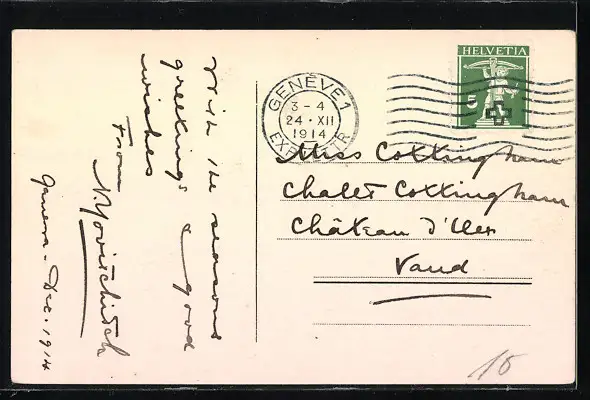 With the seasons
greetings & good
wishes
from
N. Yovitchitch
Geneva - Dec. 1914
HELVETIA
5
GENÈVE 1
3-4
24·XII
1914
Miss Cottingham
Chalet Cottingham
Château d'Oex
Vaud
15